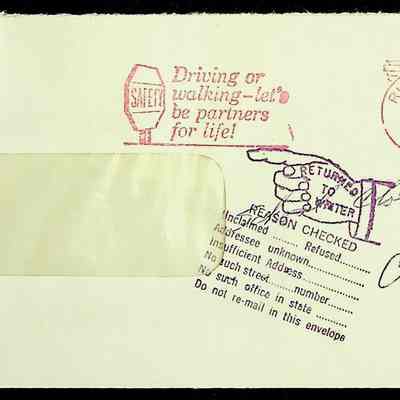 SAFETY
Driving or
walking-let's
be partners
for life!
RETURNED
TO
WRITER
REASON CHECKED
Unclaimed ...... Refused........
Addressee unknown..........
Insufficient Address..........
No such street.......number........
No such office in state ..........
Do not re-mail in this envelope